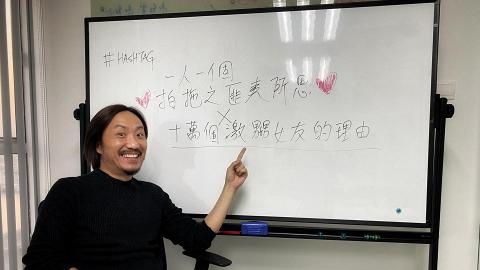 #HASHTAG
一人一個
拍拖之匪夷所思
×
十萬個激嬲女友的理由